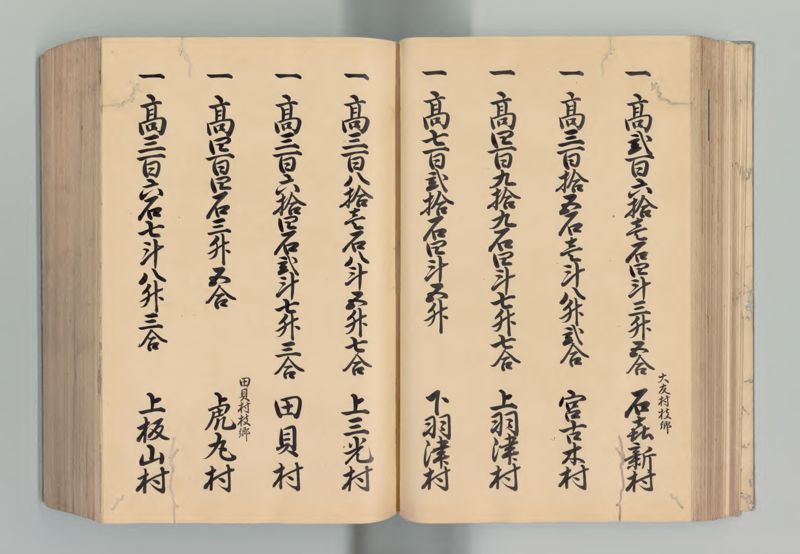 一 高弐百六拾壱石四斗三升五合 大友村枝郷 石喜新村
一 高三百拾五石壱斗八升弐合 宮古木村
一 高四百九拾九石四斗七升七合 上羽津村
一 高七百弐拾石四斗五升 下羽津村
一 高三百八拾壱石八斗五升七合 上三光村
一 高三百六拾四石弐斗七升三合 田貝村
一 高四百四石三升五合 田貝村枝郷 虎丸村
一 高三百六石七斗八升三合 上板山村